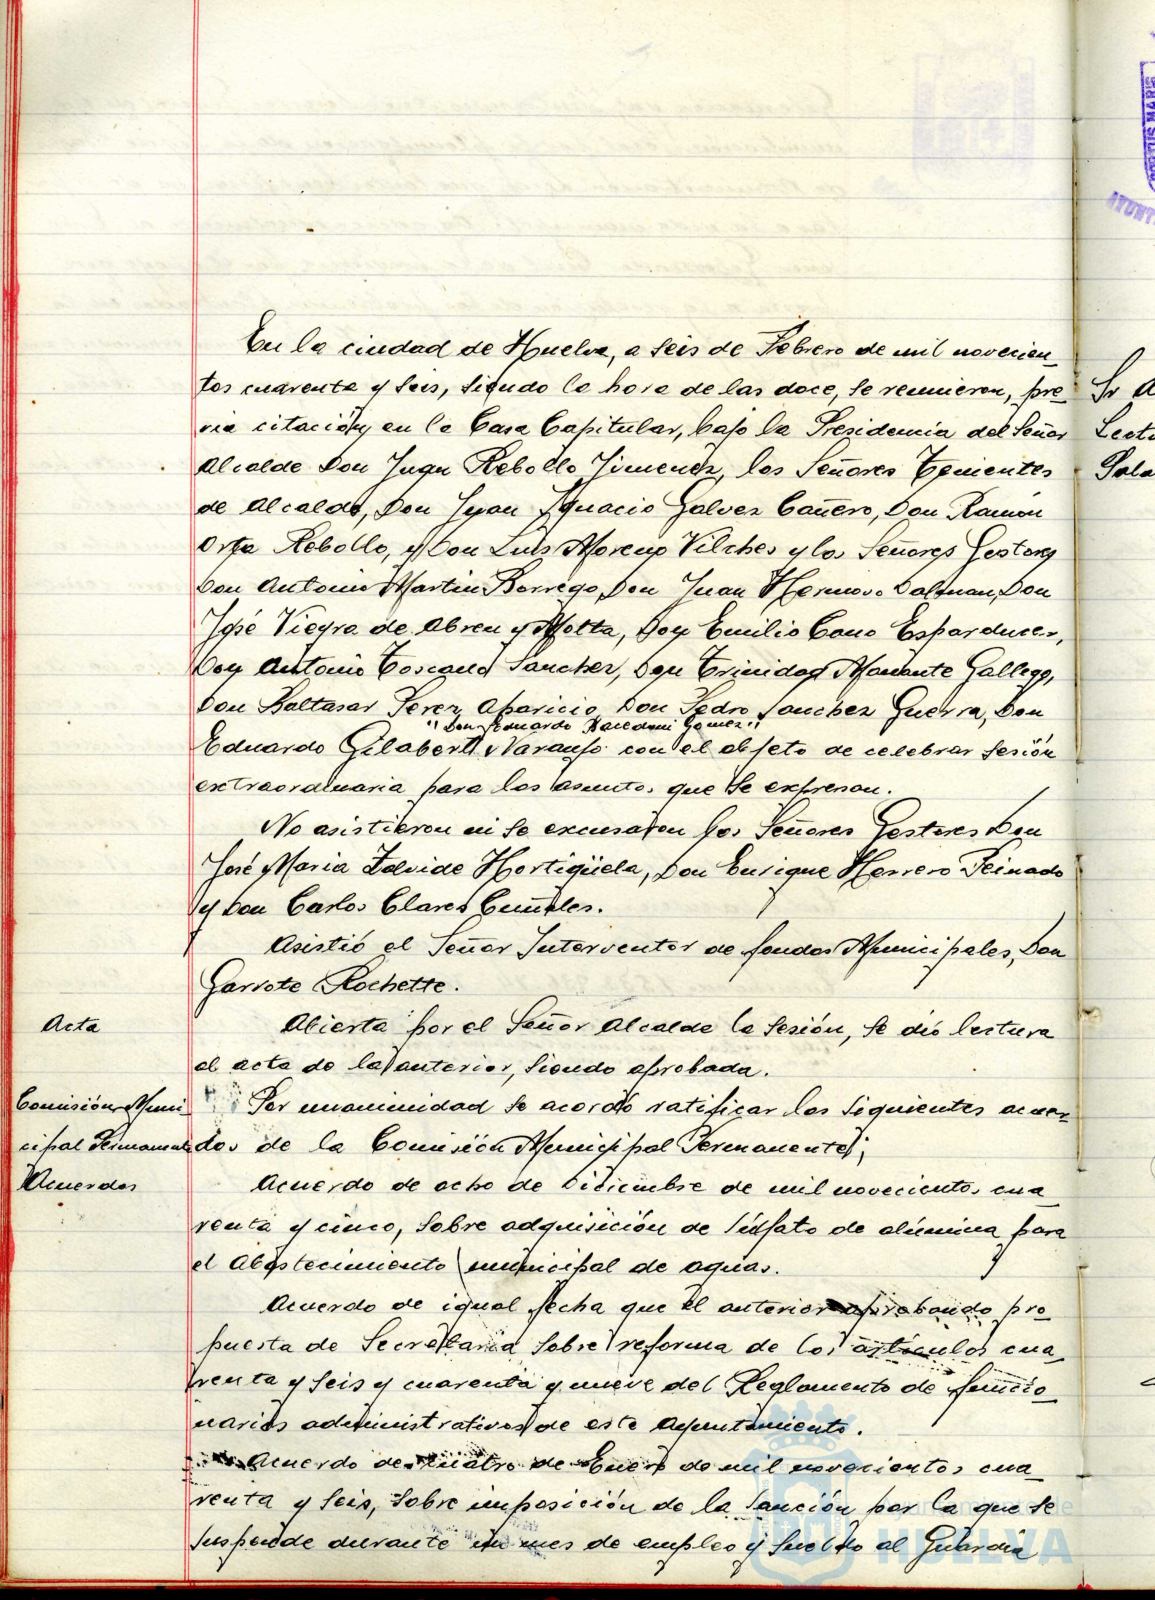 En la ciudad de Huelva, a seis de Febrero de mil novecien_
tos cuarenta y seis, siendo la hora de las doce, se reunieron, pre_
via citación, en la Casa Capitular, bajo la Presidencia del Señor
Alcalde Don Juan Rebollo Jimenez, los Señores Tenientes
de Alcalde, Don Juan Ignacio Galvez Cañero, Don Ramón
Orta Rebollo, y Don Luis Moreno Vilches y los Señores Gestores
Don Antonio Martin Borrego, Don Juan Hermoso Dalman, Don
José Vieyra de Abreu y Motta, Don Emilio Cano Esparducer,
Don Antonio Toscano Sanchez, Don Trinidad Manante Gallego,
Don Baltasar Perez Aparicio, Don Pedro Sanchez Guerra, Don
"Don Eduardo Macedoni Gomez."
Eduardo Gilabert Naranjo con el objeto de celebrar sesión
extraordinaria para los asuntos que se expresan.
No asistieron ni se excusaron los Señores Gestores Don
José Maria Zalvide Hortigüela, Don Enrique Herrero Peinado
y Don Carlos Clares
Asistió el Señor Interventor de fondos Municipales, Don
Garrote Rochette.
Acta
Abierta por el Señor Alcalde la Sesión, se dió lectura
al acta de la anterior, siendo aprobada.
Comisión Muni
cipal Permanente
Acuerdos
Por unanimidad se acordó ratificar los siguientes acuer_
dos de la Comisión Municipal Permanente;
Acuerdo de ocho de Diciembre de mil novecientos cua
renta y cinco, sobre adquisición de Sulfato de alúmina para
el Abastecimiento municipal de aguas.
Acuerdo de igual fecha que el anterior aprobando pro_
puesta de Secretaria sobre reforma de los artículos cua_
renta y seis y cuarenta y nueve del Reglamento de funcio_
narios administrativos de este Ayuntamiento.
Acuerdo de cuatro de Enero de mil novecientos cua_
renta y seis, sobre imposición de la sanción por la que se
suspende durante un mes de empleo y sueldo al Guardia
Sr A
Lectu
HUELVA